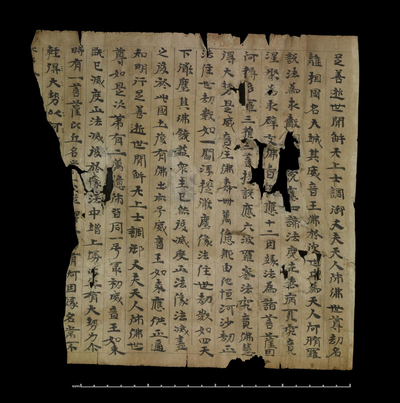 足善逝世間解无上士調御丈夫天人師佛世尊劫名
離衰國名大成其威音王佛於彼世中為天人阿脩羅
說法為求聲 應四諦法度生老病死究竟
涅槃為求辟支佛者 應十二因緣法為諸菩薩因
阿耨多羅三藐三菩提說應六波羅蜜法究竟佛慧
得大勢是威音王佛壽卌萬億那由他恒河沙劫正
法住世劫數如一閻浮提微塵像法住世劫數如四天
下微塵其佛饒益眾生已然後滅度正法像法滅盡
之後於此國土復有佛出亦号威音王如來應供正遍
知明行足善逝世間解无上士調御丈夫天人師佛世
尊如是次第有二萬億佛皆同一号最初威音王如來
既已滅度正法滅後於像法中增上慢 有大勢力尒
時有一菩薩比丘名常
輕得大勢以何 何因緣名常不